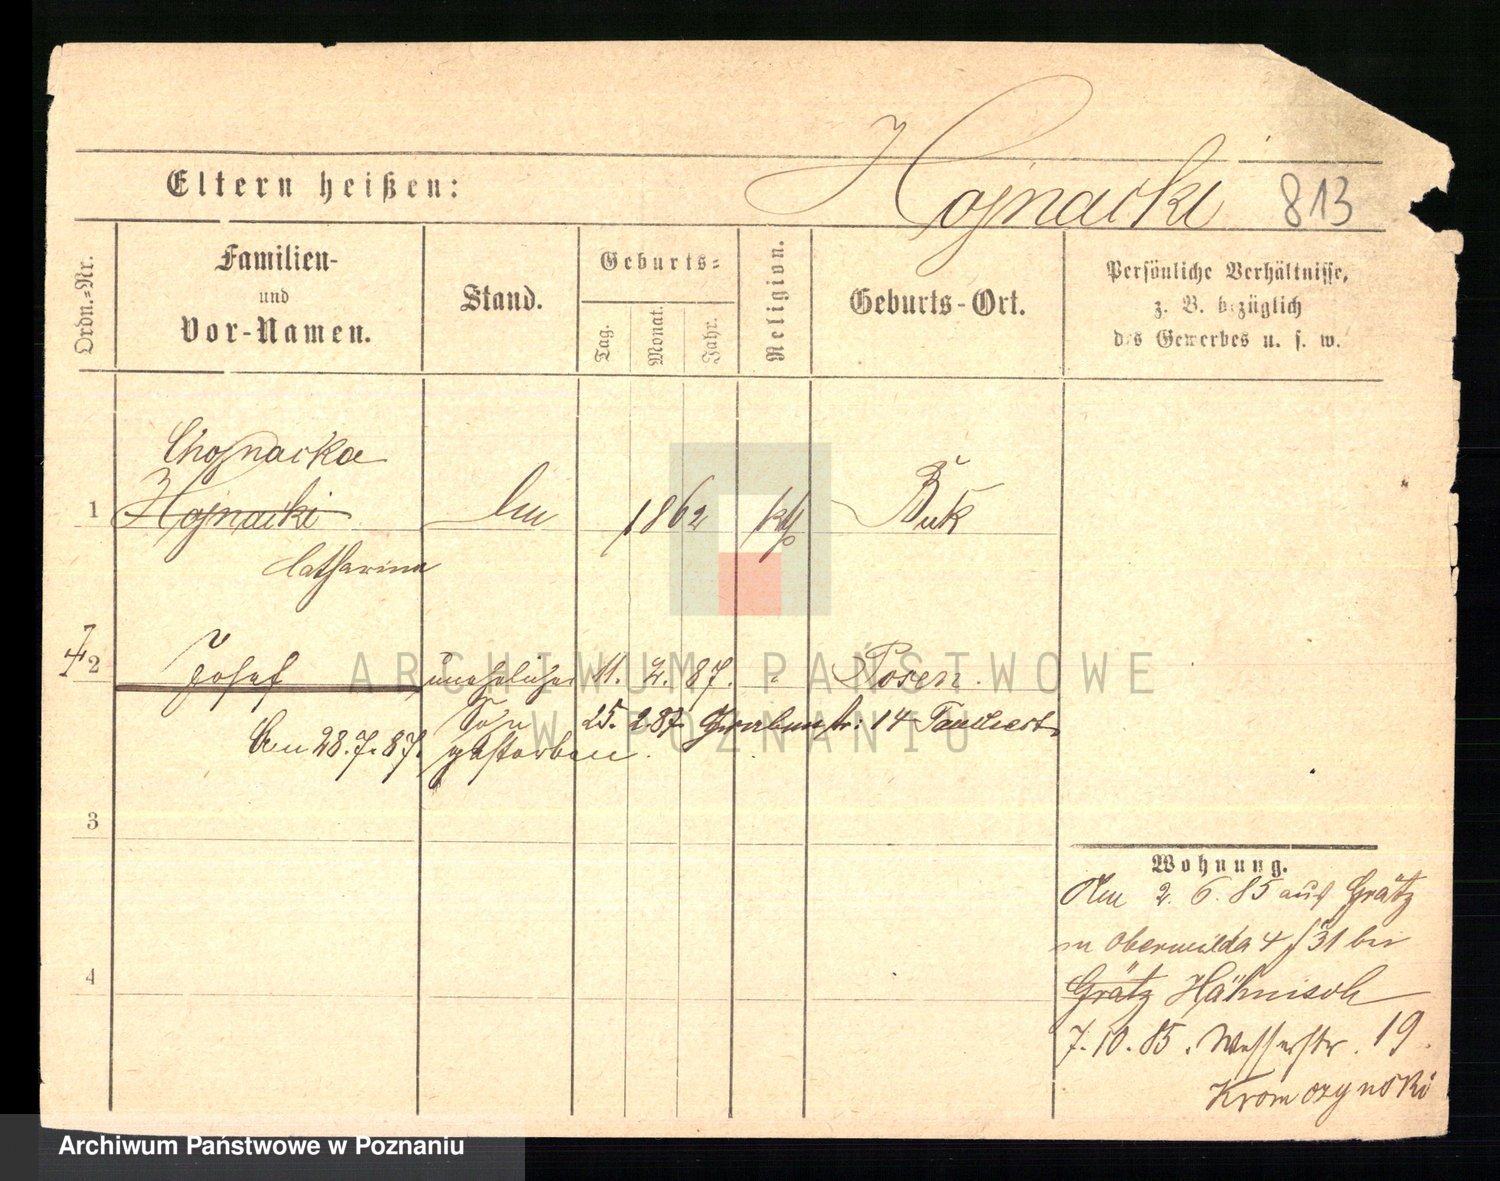 Hojnacki 813
Eltern heißen:
Ordn.=Nr.
Familien-
und
Vor-Namen.
Stand.
Geburts=
Tag.
Monat.
Jahr.
Religion.
Geburts-Ort.
Persönliche Verhältnisse,
z. B. bezüglich
des Gewerbes u. s. w.
Chojnacka
1 Hojnacki 1862 kth Buk
Catharina
2 Josef unehelicher 11. 2. 87. Posen.
Sohn 25. 2 87 Grabenstr: 14
Am 28.7.87. gestorben.
3
4
Wohnung.
Am 2. 6. 85 aus Grätz
Oberwilda 4 31 bei
Grätz Hähnisch
7.10.85. Wasserstr. 19.
Kromczynski
ARCHIWUM PAŃSTWOWE
W POZNANIU
Archiwum Państwowe w Poznaniu